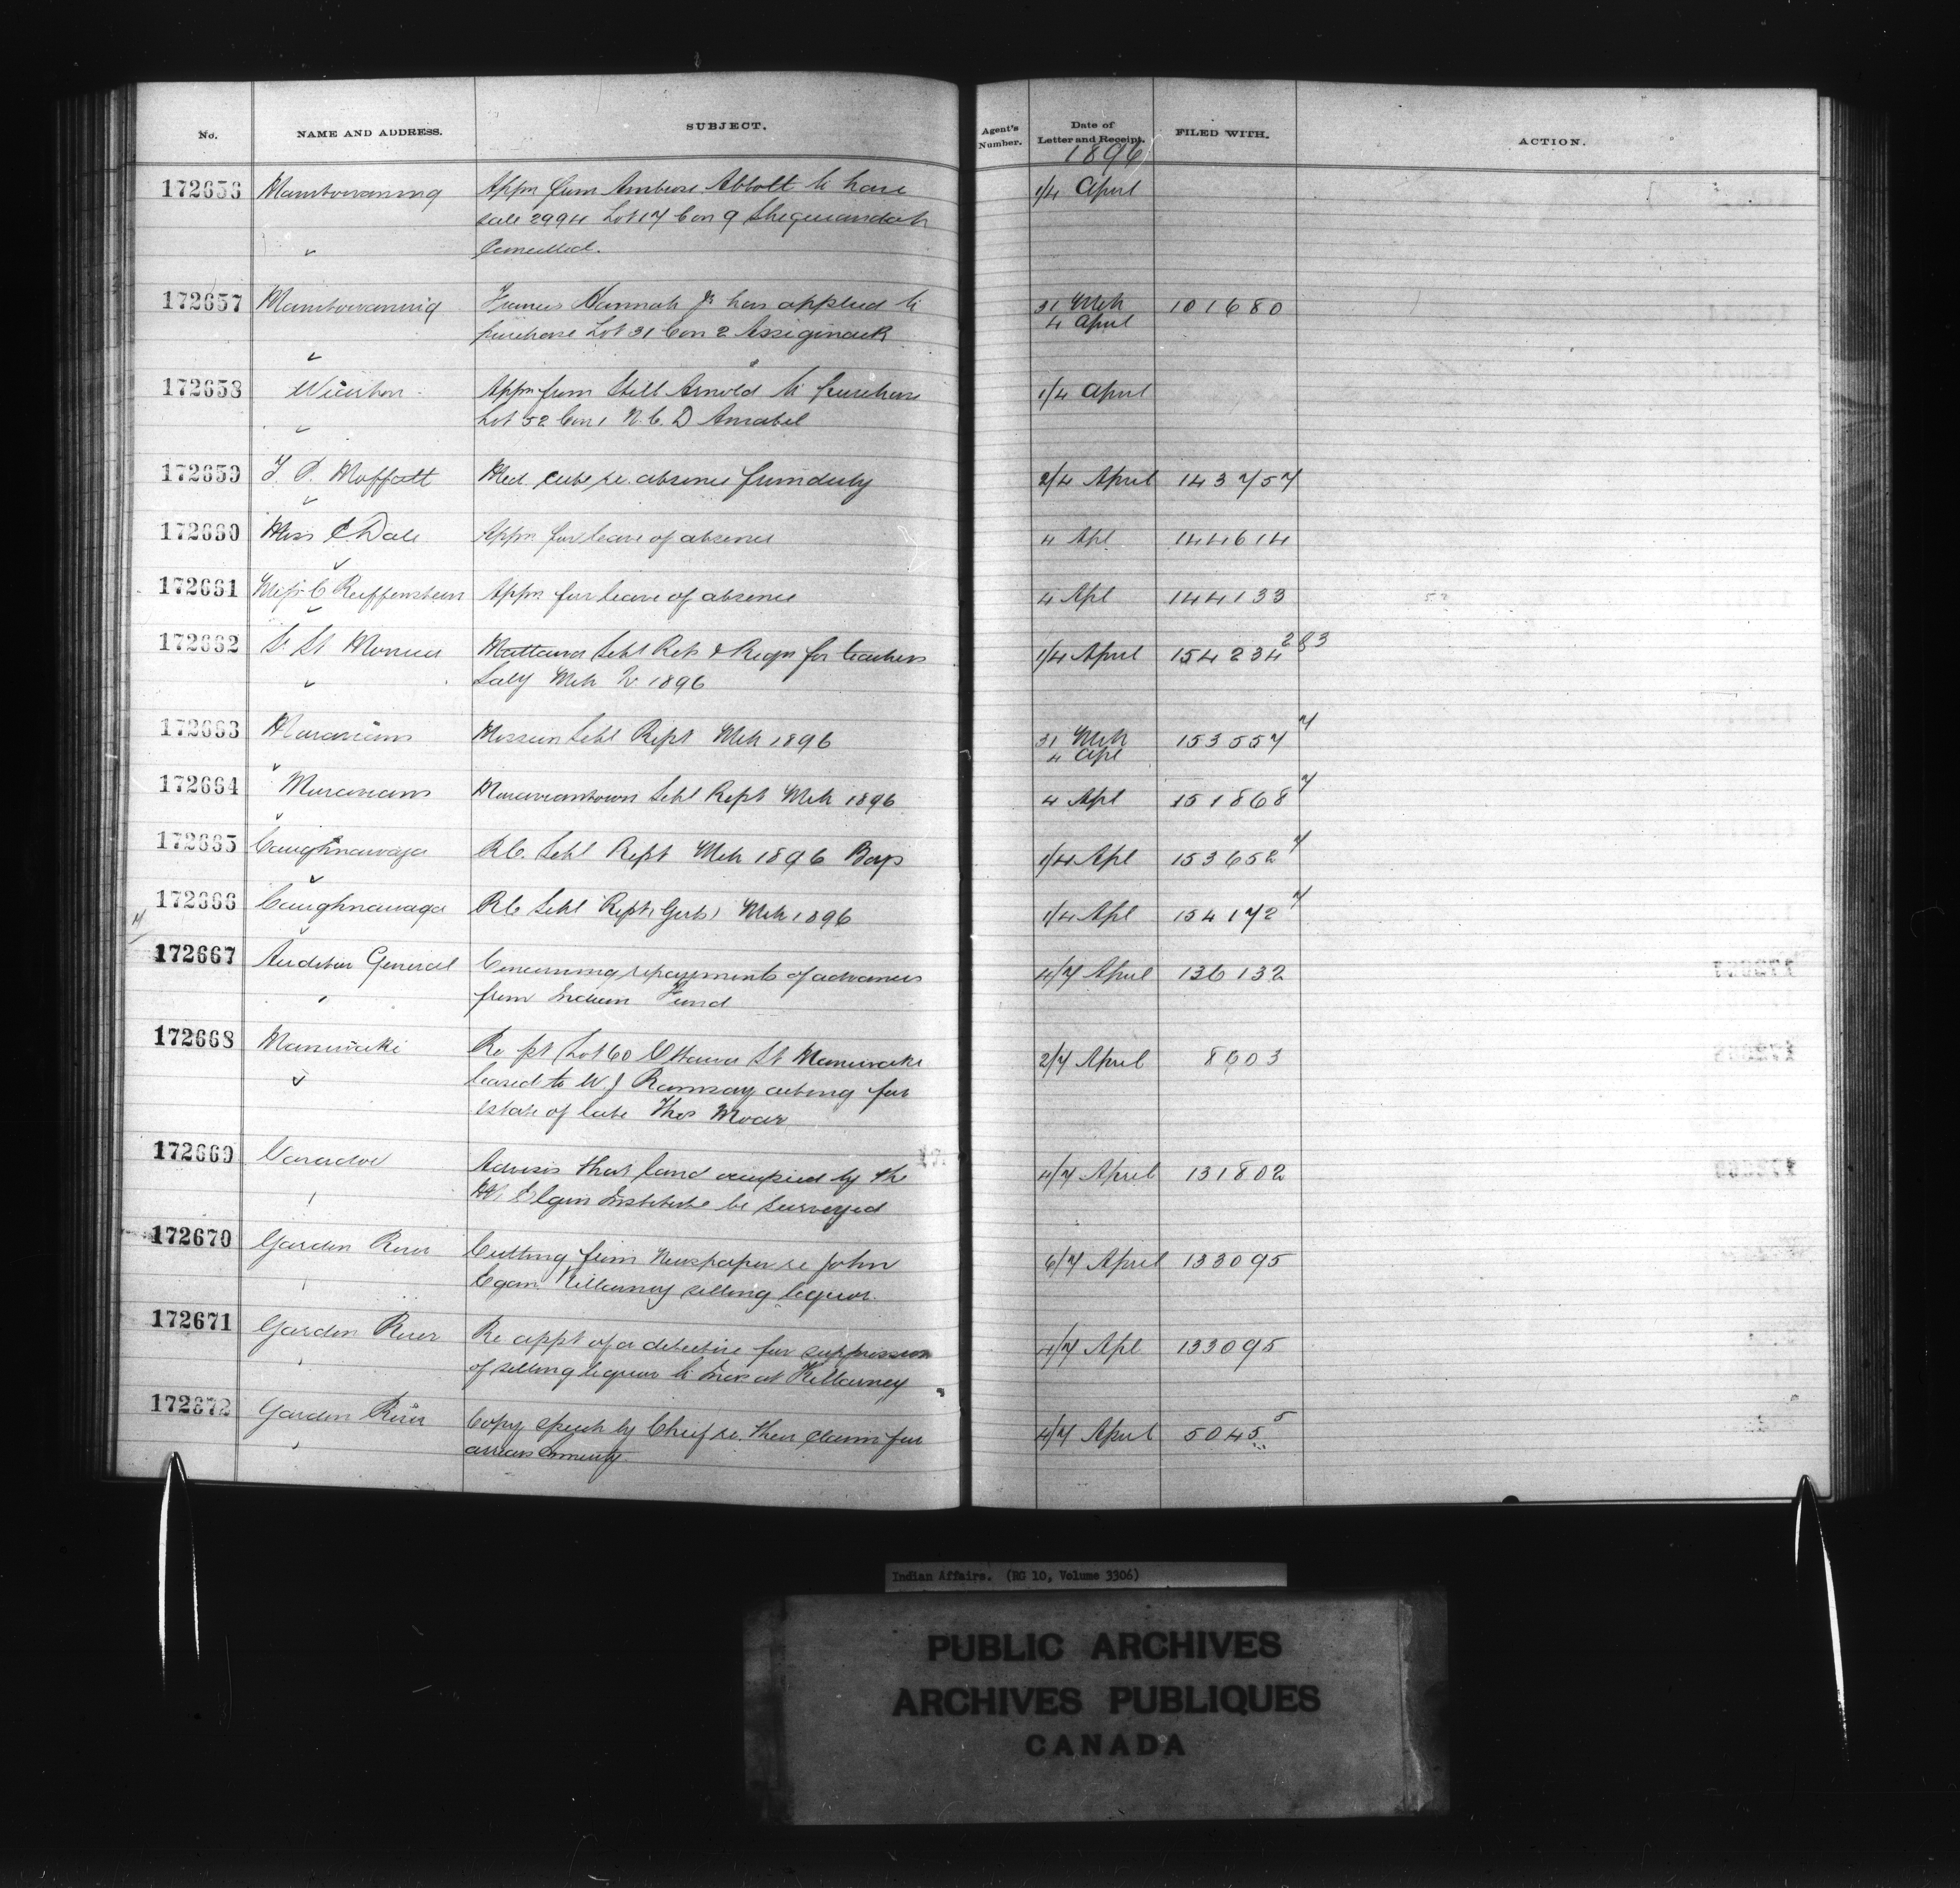 No. NAME AND ADDRESS. SUBJECT. Agent's Number. Date of Letter and Receipt. FILED WITH. ACTION.
1896
172656 Manitowaning Appn from Ambrose Abbott to have 1/4 April
sale 2994 Lot 17 Con 9 Sheguiandah
Cancelled.
172657 Manitowaning Francis Hannah Jr has applied to 31 Mch 101680
purchase Lot 31 Con 2 Assiginack 4 April
172658 Wiarton Appn from Still Arnold to purchase 1/4 April
Lot 52 Con 1 N. C. D Amabel
172659 T. P. Moffatt Med. cert re. absence from duty 2/4 April 143757
172660 Miss Dale Appn for leave of absence 4 Apl 144614
172661 Miss C Reiffenstein Appn for leave of absence 4 Apl 144133
172662 Sr. St Monica Mattawa Schl Rets & Reqn for teachers 1/4 April 154234 283
Saly Mch Qr 1896
172663 Moravians Mission Schl Rept Mch 1896 31 Mch 153557 7
4 Apl
172664 Moravians Moraviantown Schl Rept Mch 1896 4 Apl 151868 7
172665 Caughnawaga R.C. Schl Rept Mch 1896 Boys 1/4 Apl 153652 7
172666 Caughnawaga RC Schl Rept (Girls) Mch 1896 1/4 Apl 154172 7
172667 Auditor General Concerning repayments of advances 4/7 April 136132
from Indian Fund
172668 Maniwaki Re pt Lot 60 Ottawa St Maniwaki 2/7 April 8603
leased to W. J Ramsay acting for
estate of late Thos Moar
172669 Advises that land occupied by the 4/7 April 131802
Mt Elgin Institute be surveyed
172670 Garden River Cutting from Newspaper re John 6/7 April 133095
Egan Killarney selling liquor.
172671 Garden River Re appt of a detective for suppression 4/7 Apl 133095
of selling liquor to Inds at Killarney
172672 Garden River Copy speech by Chief re. their claim for 4/7 April 5045 5
arrears annuity
Indian Affairs. (RG 10, Volume 3306)
PUBLIC ARCHIVES
ARCHIVES PUBLIQUES
CANADA